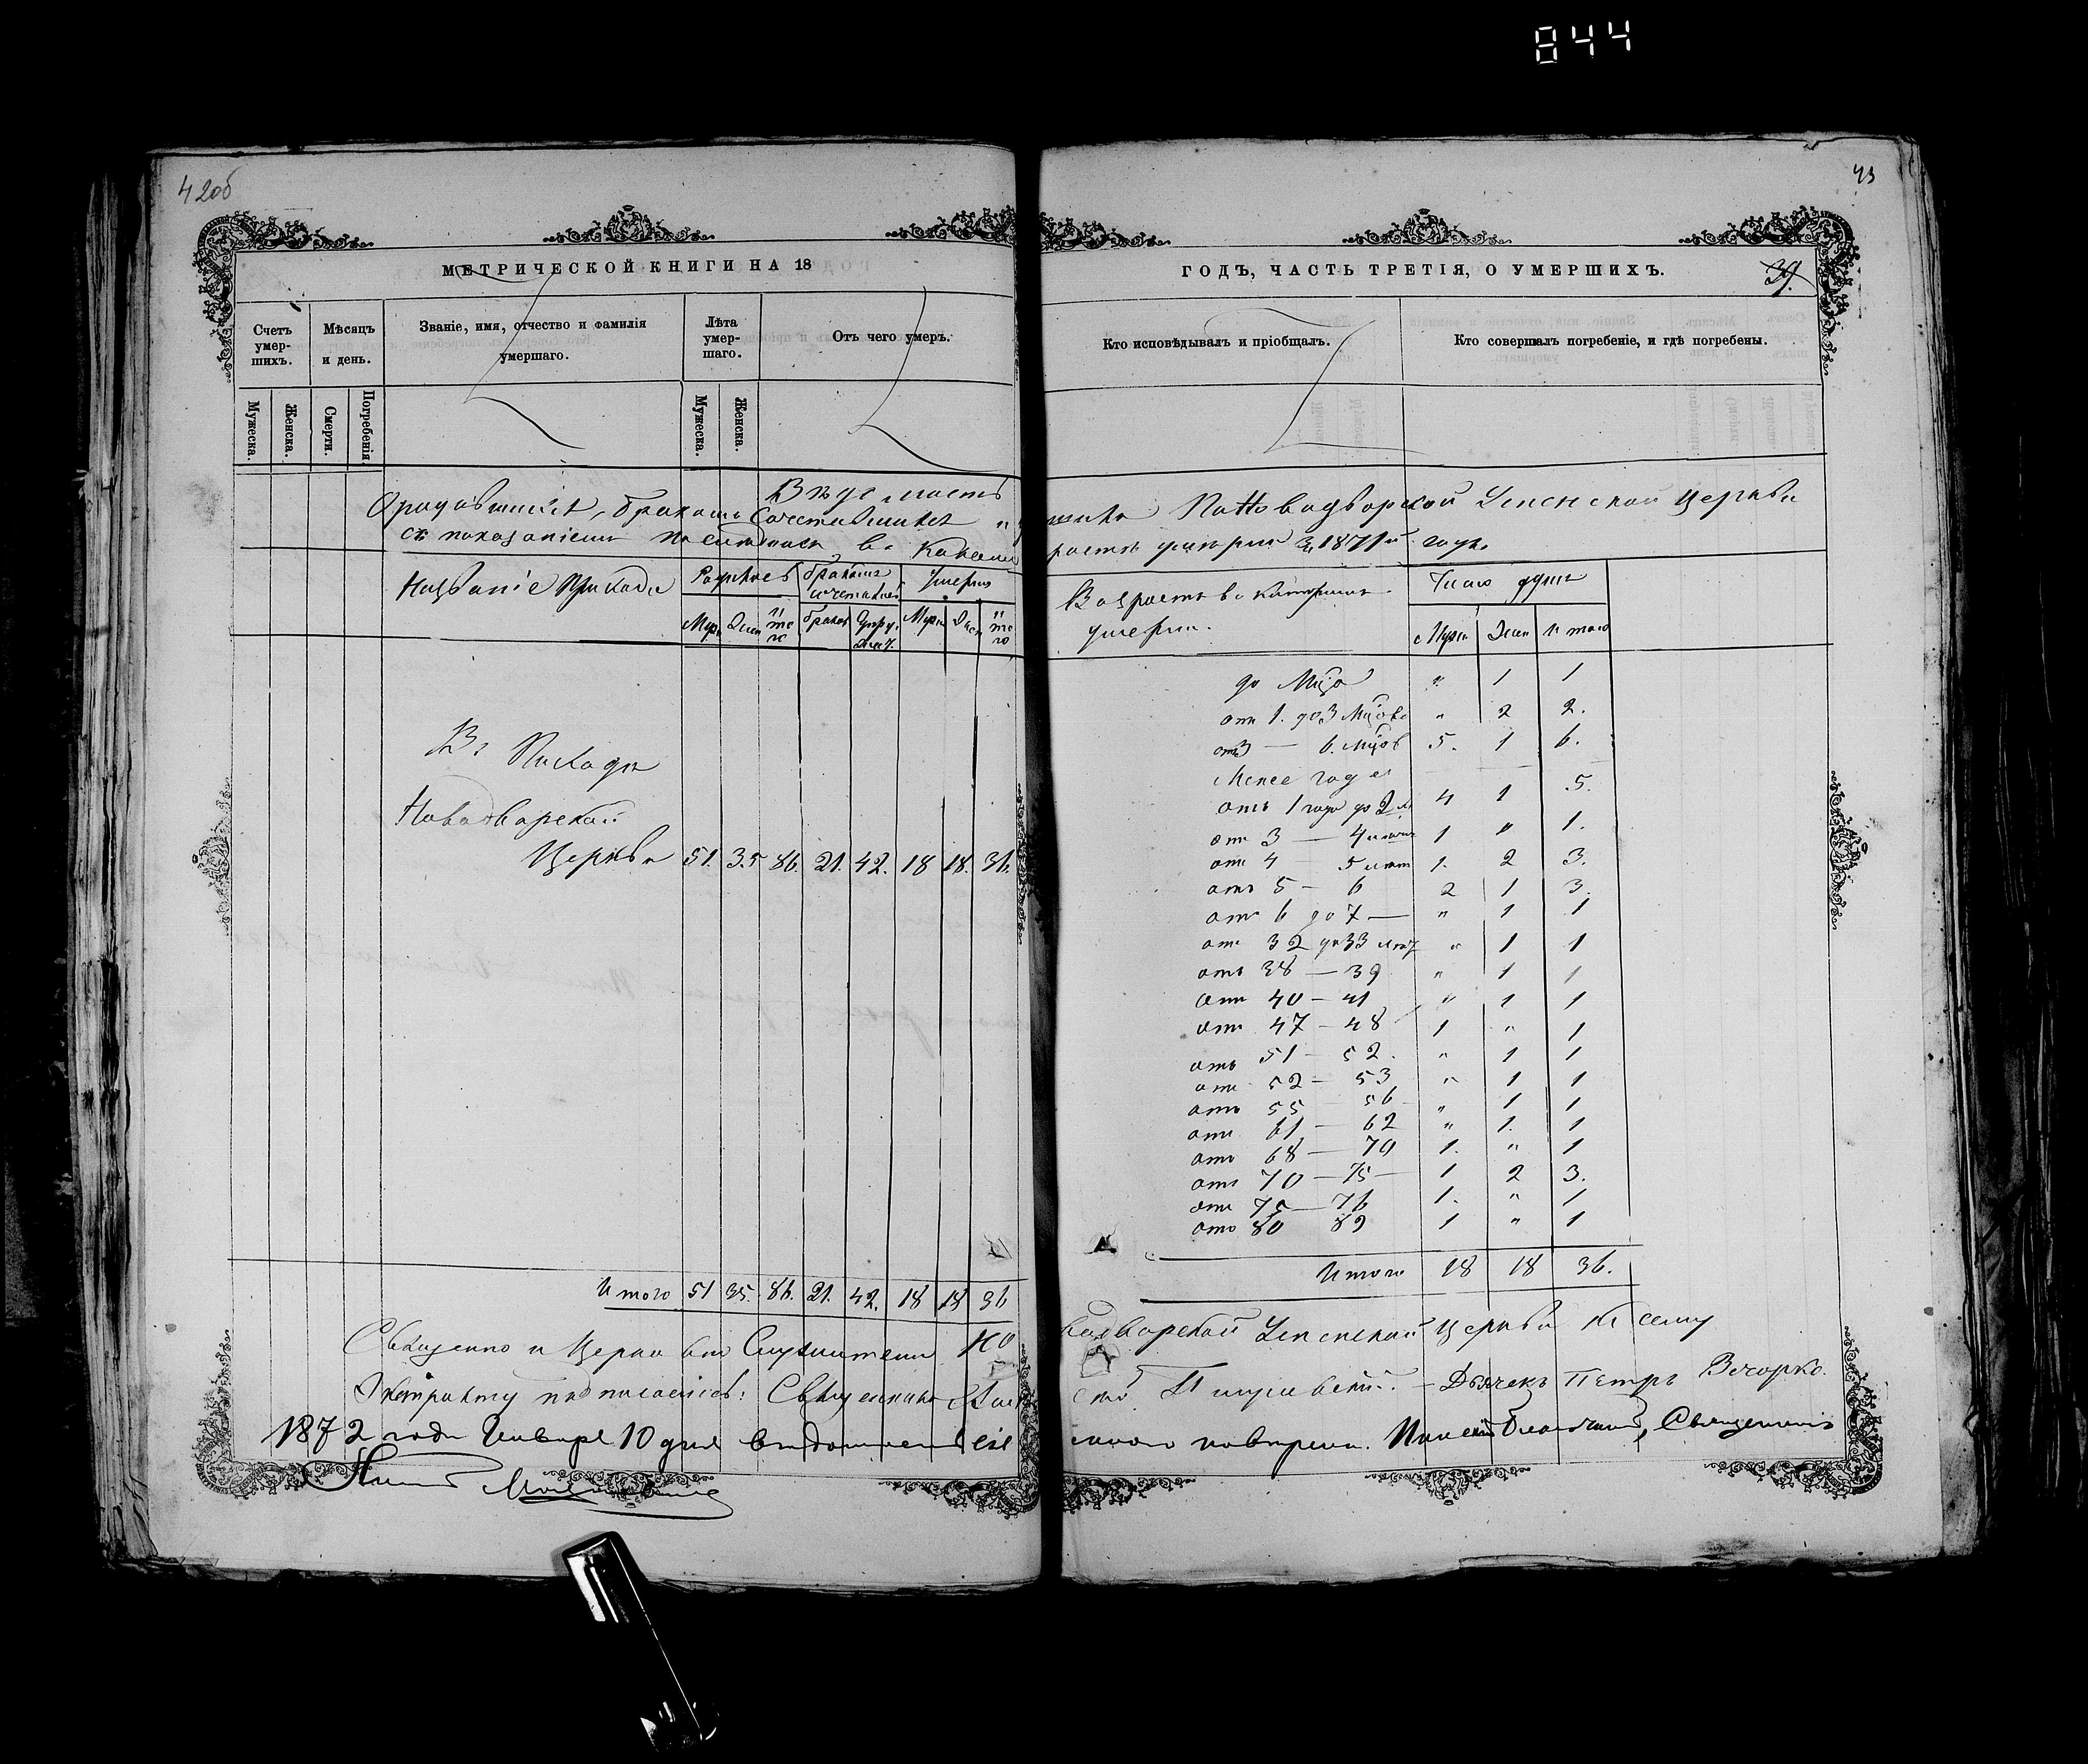 844
42об
43
МЕТРИЧЕСКОЙ КНИГИ НА 18
ГОДЪ, ЧАСТЬ ТРЕТІЯ, О УМЕРШИХЪ.
39.
Счетъ умер-шихъ.
Мѣсяцъ и день.
Званіе, имя, отчество и фамилія умершаго.
Лѣта умер-шаго.
Отъ чего умеръ.
Кто исповѣдывалъ и пріобщалъ.
Кто совершалъ погребеніе, и гдѣ погребены.
Мужеска.
Женска.
Смерти.
Погребенія.
Мужеска.
Женска.
Вѣдомость
О родившихся, бракомъ сочетавшихся и
по Новодворской Успенской церкви
съ показаніемъ
умерли за 1871й годъ.
Названіе прихода
бракомъ
Умерло
Муж
Жен
итого
браковъ
Муж
Жен
итого
Возрастъ въ которомъ
умерли.
Число душъ
Муж
Жен
Итого
Въ Приходѣ
Новодворской
Церкви 51. 35 86. 21. 42. 18 18. 36.
до Мца " 1 1
от 1. до 3 Мцовъ " 2 2.
от 3 — 6. Мцов 5. 1 6.
Менее года
отъ 1 года до 2 4 1 5.
от 3 — 4 1 " 1.
от 4 5 лѣт 1. 2 3.
отъ 5 — 6 2 1 3.
от 6 до 7 — " 1 1
от 32 до 33 лѣт " 1 1
отъ 38 — 39 " 1 1
от 40 — 41 " 1 1
от 47 — 48 1 " 1
отъ 51 — 52. " 1 1
от 52 — 53 " 1 1
отъ 55 56 " 1 1
от 61 — 62 " 1. 1
отъ 68 — 70 1. " 1
от 70 — 75 — 1 2 3.
от 75 — 76 1. " 1
отъ 80 89 1 " 1
Итого 18 18 36.
Итого 51 35. 86. 21. 42. 18 18 36
Священно и Церковно Служители Но
водворской Успенской Церкви къ сему
Экстракту подписались: Священникъ
Дьячекъ Петръ Вечорко.
1872 года Января 10 дня
Священникъ